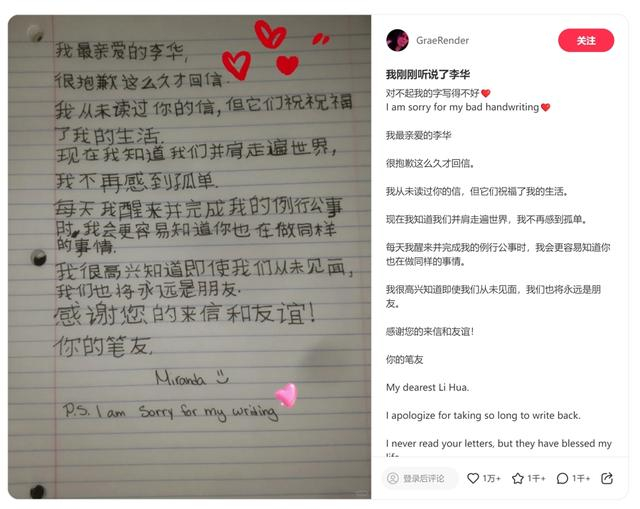 我最亲爱的李华,
很抱歉这么久才回信.
我从未读过你的信,但它们祝祝福
了我的生活.
现在我知道我们并肩走遍世界,
我不再感到孤单.
每天我醒来并完成我的例行公事
时,我会更容易知道你也在做同样
的事情.
我很高兴知道即使我们从未见面,
我们也将永远是朋友.
感谢您的来信和友谊!
你的笔友,
Miranda
P.S. I am sorry for my writing
GraeRender
关注
我刚刚听说了李华
对不起我的字写得不好❤️
I am sorry for my bad handwriting❤️
我最亲爱的李华
很抱歉这么久才回信。
我从未读过你的信,但它们祝福了我的生活。
现在我知道我们并肩走遍世界,我不再感到孤单。
每天我醒来并完成我的例行公事时,我会更容易知道你
也在做同样的事情。
我很高兴知道即使我们从未见面,我们也将永远是朋
友。
感谢您的来信和友谊!
你的笔友
My dearest Li Hua.
I apologize for taking so long to write back.
I never read your letters, but they have blessed my
life.
登录后评论
1万+
1千+
1千+